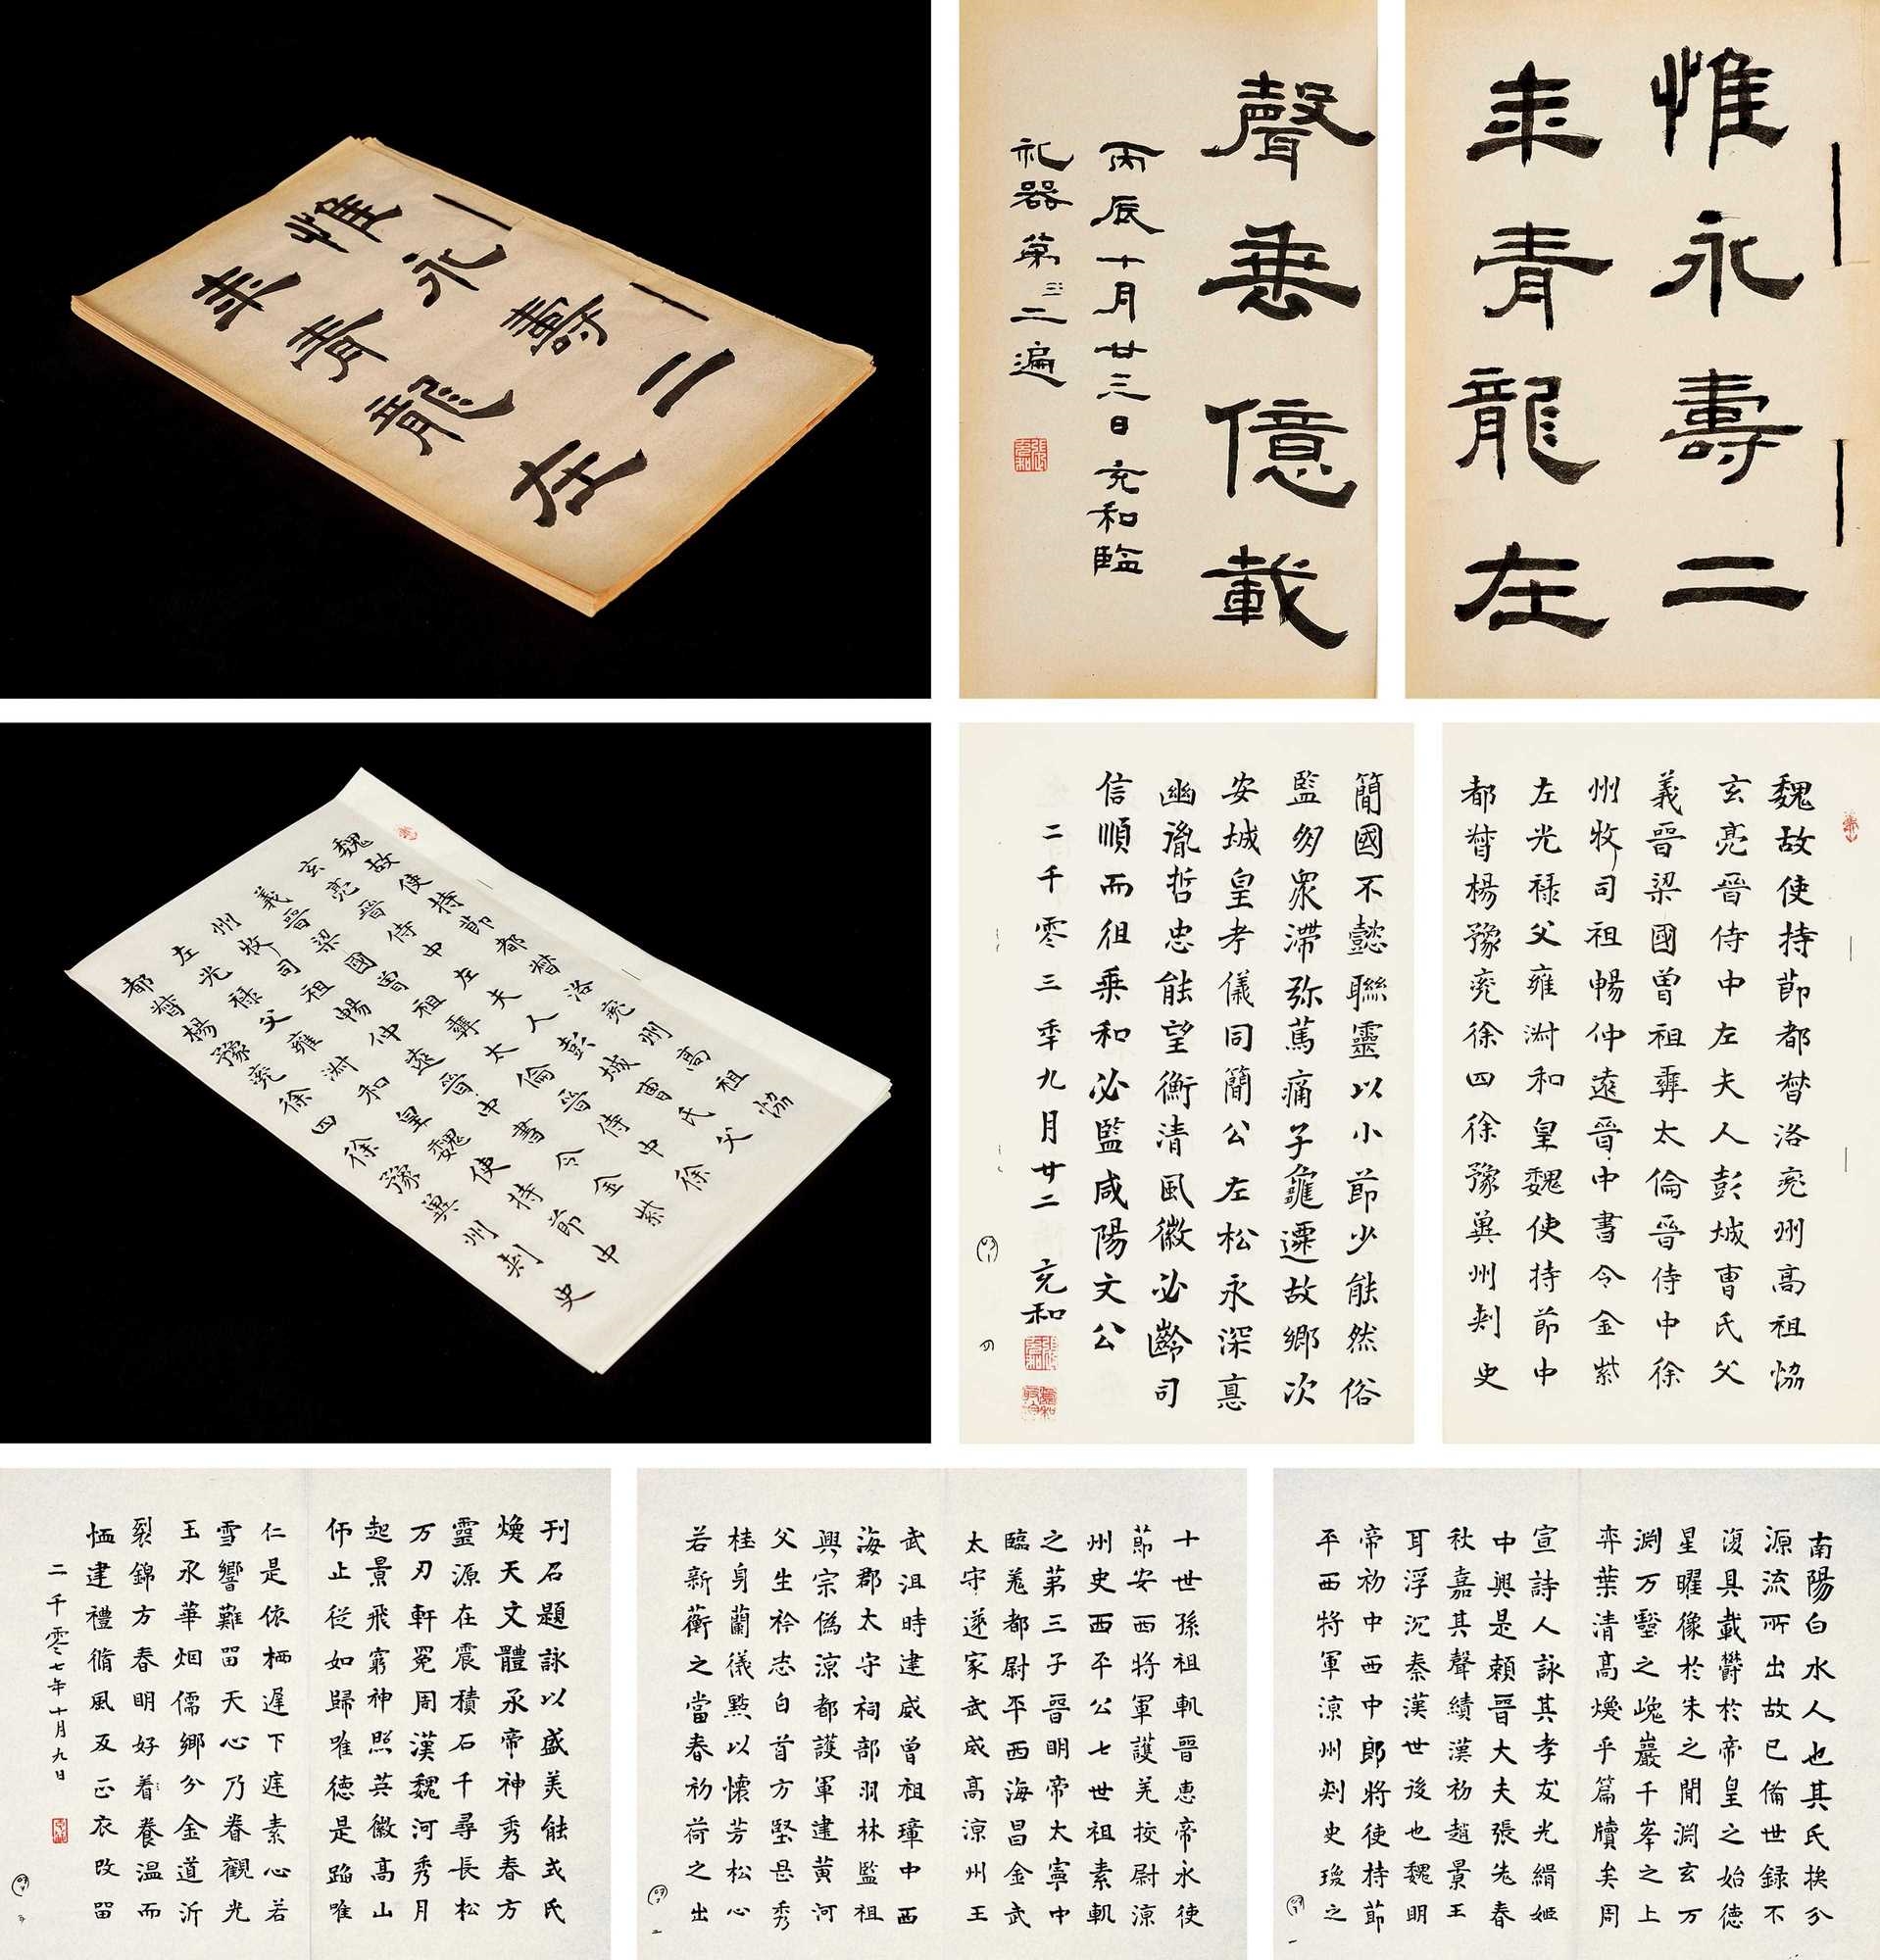 惟永壽二
年青龍在
惟永壽二
年青龍在
聲垂億載
丙辰十月廿三日充和臨
礼器第三二遍
魏故使持節都督洛兖州高祖恊
玄亮晉侍中左夫人彭城曹氏父
義晉梁國曾祖彝太倫晉侍中徐
州牧司祖暢仲遠晉中書令金紫
左光禄父雍淵和皇魏使持節中
都督楊豫兖徐四徐豫冀州刺史
魏故使持節都督洛兖州高祖恊
玄亮晉侍中左夫人彭城曹氏父
義晉梁國曾祖彝太倫晉侍中徐
州牧司祖暢仲遠晉中書令金紫
左光禄父雍淵和皇魏使持節中
都督楊豫兖徐四徐豫冀州刺史
簡國不懿聯靈以小節少能然俗
監匆衆滯弥篤痛子龜遷故鄉次
安城皇孝儀同簡公左松永深悳
幽胤哲忠能望衡清風徽必齡司
信順而徂乗和必監咸陽文公
二千零三年九月廿二 充和
南陽白水人也其氏挨分
源流所出故已俻世録不
復具載欝於帝皇之始徳
星曜像於朱之閒淵玄万
淵万壑之嵬巖千峯之上
弈葉清高煥乎篇牘矣周
宣詩人詠其孝友光緝姬
中興是頼晉大夫張老春
秋嘉其聲績漢初趙景王
耳浮沉秦漢世後也魏明
帝初中西中郎將使持節
平西將軍涼州刺史瓊之
十世孫祖軌晉惠帝永使
節安西將軍護羌挍尉涼
州史西平公七世祖素軌
之第三子晉明帝太寧中
臨羌都尉平西海昌金武
太守遂家武威高涼州王
武沮時建威曾祖璋中西
海郡太守祠部羽林監祖
興宗偽涼都護軍建黄河
父生衿志白首方堅是秀
桂身蘭儀點以懷芳松心
若新蘅之當春初荷之出
刊石題詠以盛美能式氏
煥天文體承帝神秀春方
靈源在震積石千尋長松
万刃軒冕周漢魏河秀月
起景飛窮神照英徽高山
仰止従如歸唯徳是蹈唯
仁是依栖遲下庭素心若
雪響難留天心乃眷觀光
玉承華烟儒鄉分金道沂
裂錦方春明好着養温而
恤建禮脩風反正衣改留
二千零七年十月九日